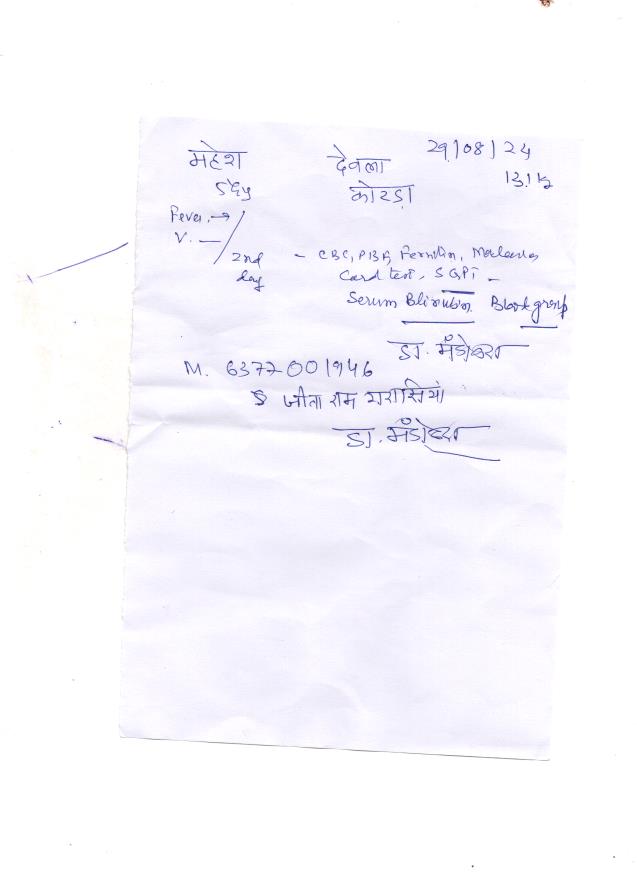 महेश देवला 29/08/24
कोटड़ा 13.1
Fever →
V. — 2nd day - CBC, PBF, Ferritin, Malaria
Card test, SGPT -
Serum Blirubin Blood group
डा. मंडोवरा
M. 6377001946
जीता राम गरासिया
डा. मंडोवरा